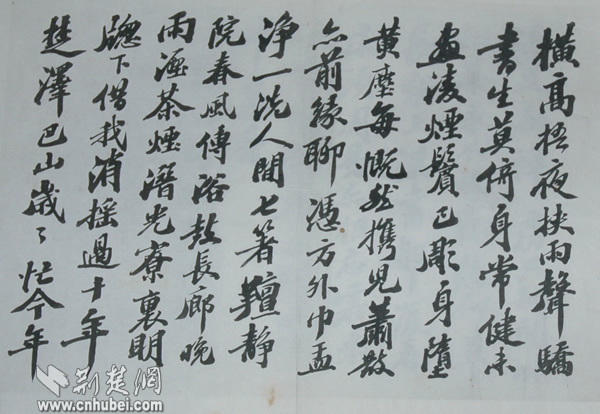 橫高梧夜挾雨聲驕
書生莫倚身常健未
畫淩煙鬢已彫身墮
黃塵每慨然攜兒蕭散
亦前緣聊憑方外巾盂
淨一洗人間匕箸羶靜
院春風傳浴鼓長廊晚
雨溼茶煙潛光寮裏明
牕下借我消搖過十年
楚澤巴山歲々忙今年
荆楚網
www.cnhubei.com